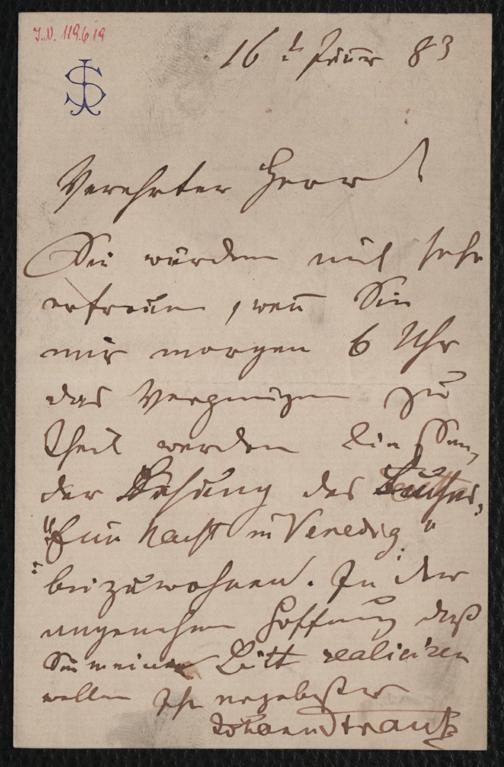 I.N. 119.619
JS
16t Jänner 83
Verehrter Herr!
Sie würden mich sehr
erfreuen, wen̄ Sie
mir morgen 6 Uhr
das Vergnügen zu
theil werden ließen,
der Lesung des Buches,
"Eine Nacht in Venedig"
beizuwohnen. In der
angenehmen Hoffnung daß
Sie meine Bitte realisiren
wollen Ihr ergebenster
Johann Strauß